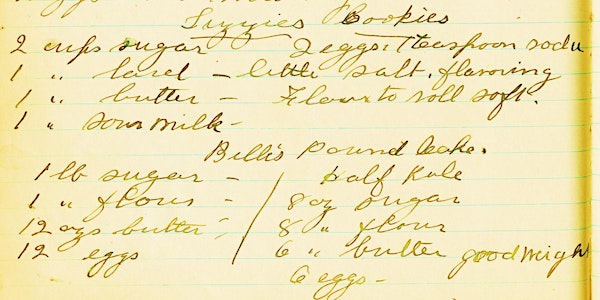 Lizzies Cookies
2 cups sugar 2 eggs. 1 teaspoon soda
1 " lard - little salt. flavoring
1 " butter - Flour to roll soft.
1 " sour milk -
Bells Pound Cake.
1 lb sugar - Half Rule
1 " flour - 8 oz sugar
12 ozs butter - 8 " flour
12 eggs 6 " butter good weigh
6 eggs -